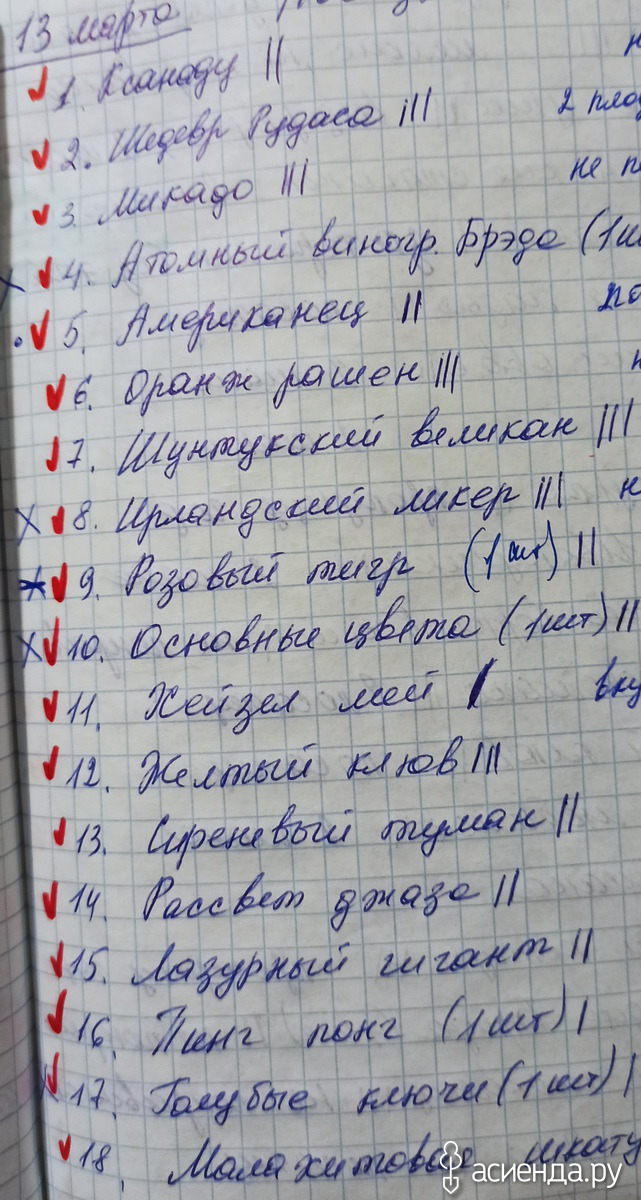 13 марта
1. Ксанаду ||
2. Шедевр Рудаса ||| 2
3. Микадо ||| не
4. Атомный виногр. Брэда (1
5. Американец ||
6. Оранж рашен |||
7. Шунтукский великан |||
8. Ирландский ликер |||
9. Розовый тигр (1 шт) ||
10. Основные цвета (1 шт) ||
11. Хейзел мей |
12. Желтый клюв |||
13. Сиреневый туман ||
14. Рассвет джаза ||
15. Лазурный гигант ||
16. Пинг понг (1 шт) |
17. Голубые ключи (1 шт) |
18. Малахитовая шкату
асиенда.ру